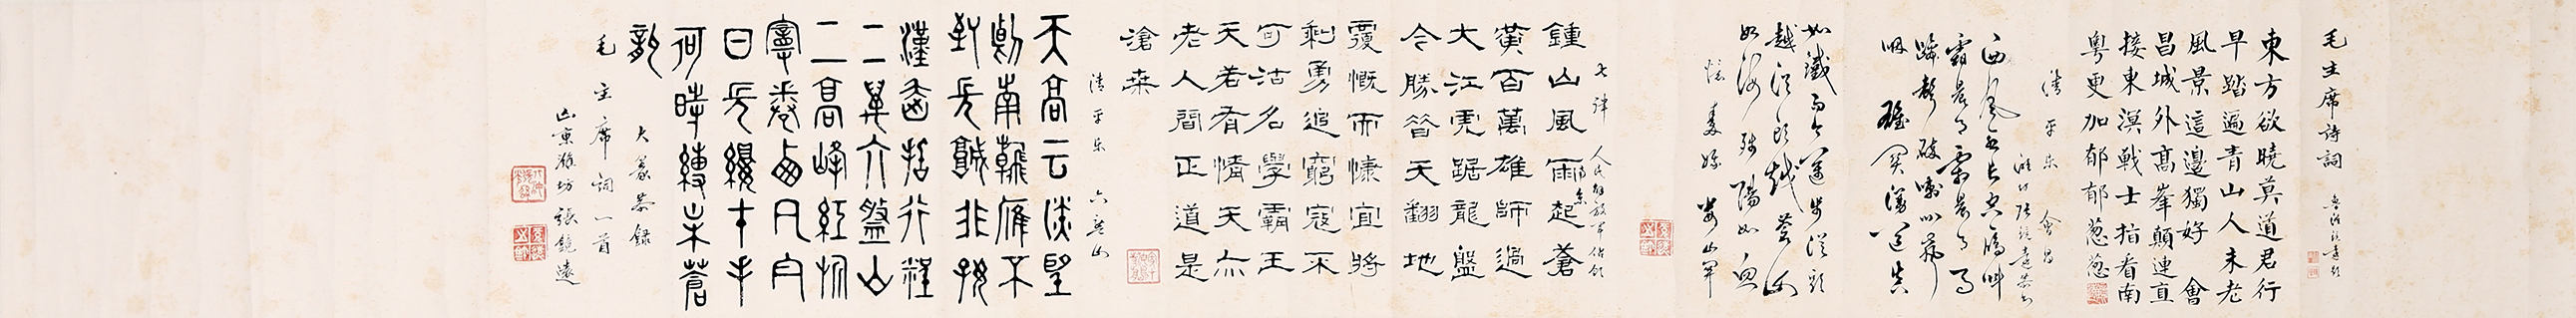 毛主席詩詞
東方欲曉莫道君行
早踏遍青山人未老
風景這邊獨好 會
昌城外高峯顛連直
接東溟戰士指看南
粵更加郁郁葱葱
清平樂 會昌
濰坊張鏡遠恭書
西風烈長空鴈叫
霜晨月霜晨月馬
蹄聲碎喇叭聲
咽 雄關漫道真
如鐵而今邁步從頭
越從頭越蒼山
如海殘陽如血
憶秦娥 婁山關
七律 人民解放軍佔領南京
鍾山風雨起蒼
黃百萬雄師過
大江虎踞龍盤
今勝昔天翻地
覆慨而慷宜將
剩勇追窮寇不
可沽名學霸王
天若有情天亦
老人間正道是
滄桑
清平樂 六盤山
天高云淡望
斷南飛雁不
到長城非好
漢屈指行程
二萬六盤山
上高峰紅旂
漫卷西風今
日長纓在手
何時縛住蒼
龍
大篆恭錄
毛主席詞一首
山東濰坊張鏡遠